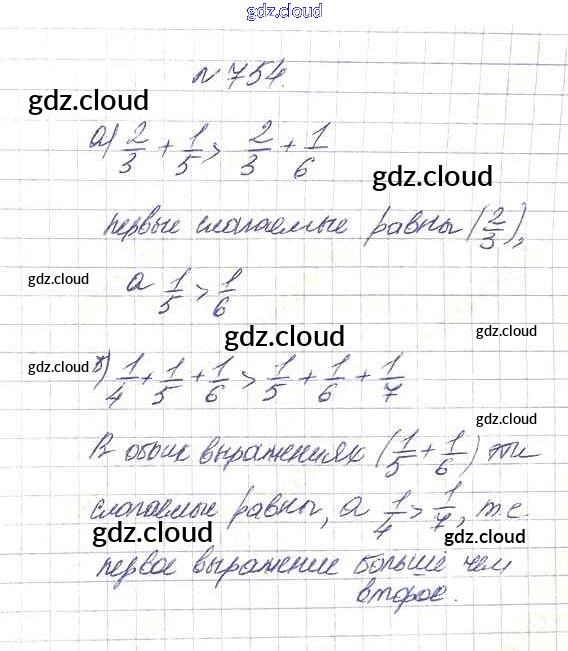 gdz.cloud
№ 754.
gdz.cloud
а) 2/3 + 1/5 > 2/3 + 1/6
gdz.cloud
первые слагаемые равны (2/3),
gdz.cloud
а 1/5 > 1/6
gdz.cloud
gdz.cloud
gdz.cloud
б) 1/4 + 1/5 + 1/6 > 1/5 + 1/6 + 1/7
gdz.cloud
В обоих выражениях (1/5 + 1/6) эти
слагаемые равны, а 1/4 > 1/7, т.е.
gdz.cloud
gdz.cloud
первое выражение больше чем
второе.